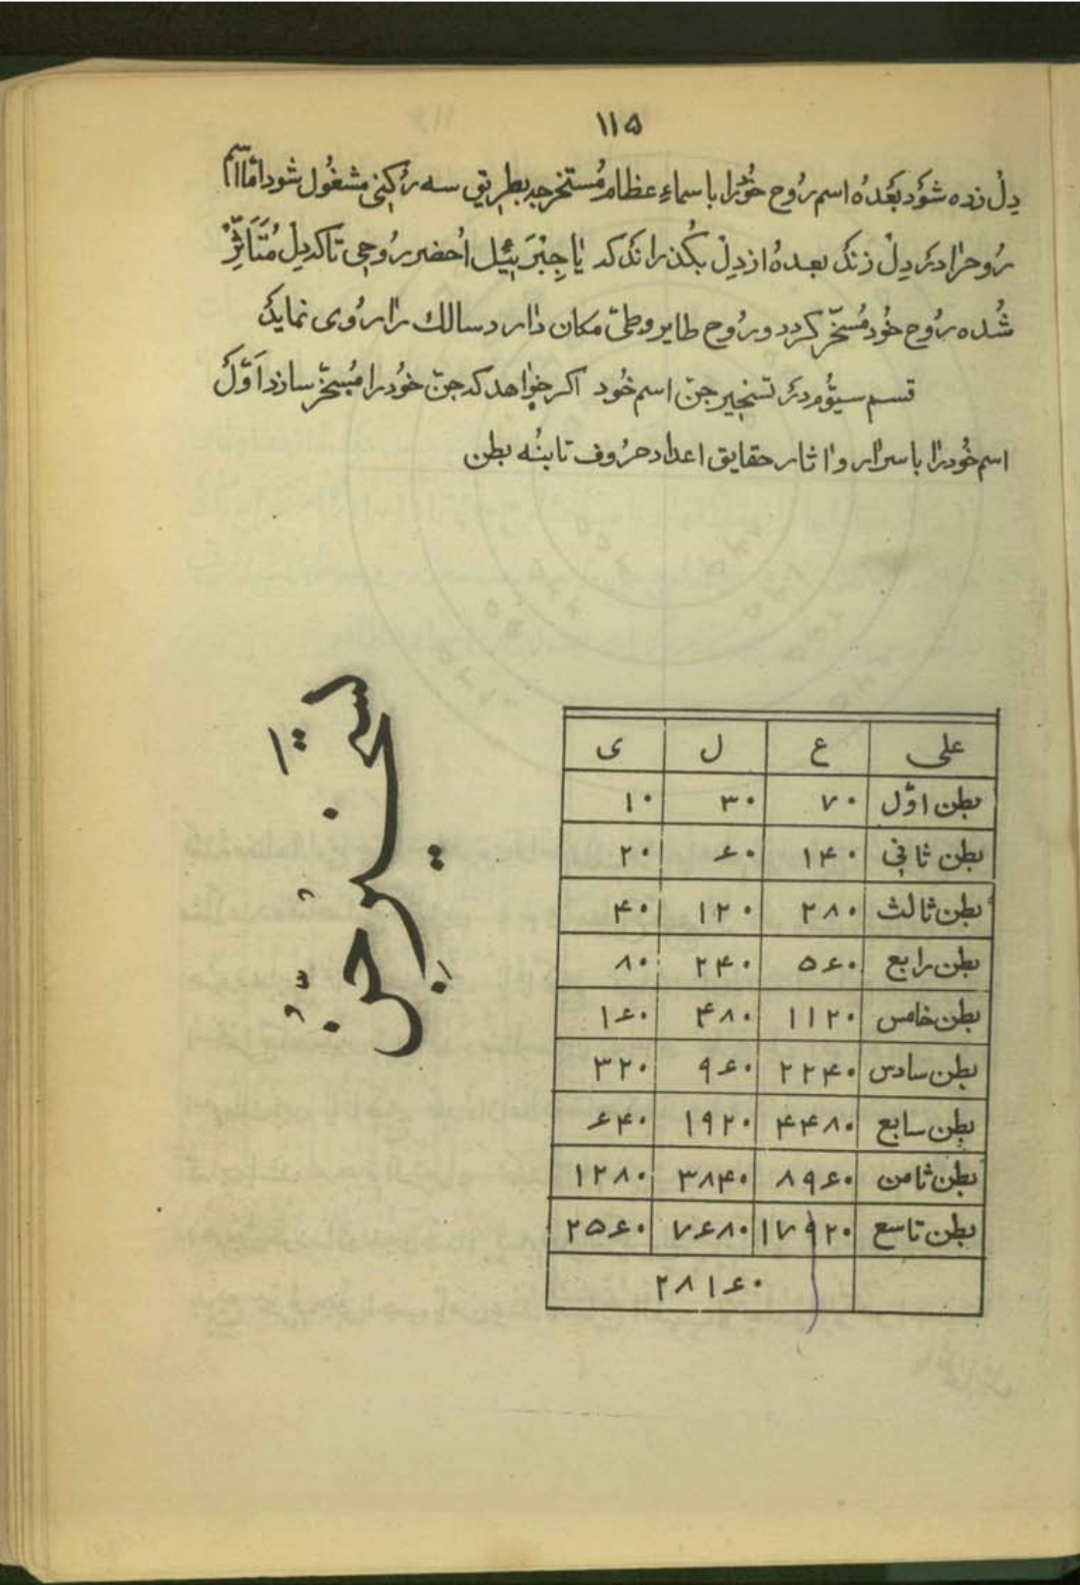 ۱۱۵
دِلْ زده شَوَد بَعْدهُ اسم رُوح خُودرا با سماءِ عظام مُستخرجه بطریق سه رُکنی مشغُول شود امّا اسم
رُوحرا در دِلْ زند بعدهُ از دِلْ بگُذراند که یا جِبْرَئیل اُحضر رُوحی تا که دِل مُتَاَثِّرْ
شُده رُوح خُود مُسخّر گردد و رُوح طایر وطیّ مکان دارد سالك را رُوی نماید
قسم سیّوُم در تسخیر جنّ اسم خُود اکر خواهد که جنّ خُودرا مُسخّر سازد اَوّل
اسم خُودرا باسرار و اثار حقایق اعداد حرُوف تا بنُه بطن
تسخیر جنّ
علی ع ل ی
بطن اوّل ۷۰ ۳۰ ۱۰
بطن ثانی ۱۴۰ ۶۰ ۲۰
بطن ثالث ۲۸۰ ۱۲۰ ۴۰
بطن رابع ۵۶۰ ۲۴۰ ۸۰
بطن خامس ۱۱۲۰ ۴۸۰ ۱۶۰
بطن سادس ۲۲۴۰ ۹۶۰ ۳۲۰
بطن سابع ۴۴۸۰ ۱۹۲۰ ۶۴۰
بطن ثامن ۸۹۶۰ ۳۸۴۰ ۱۲۸۰
بطن تاسع ۱۷۹۲۰ ۷۶۸۰ ۲۵۶۰
۲۸۱۶۰